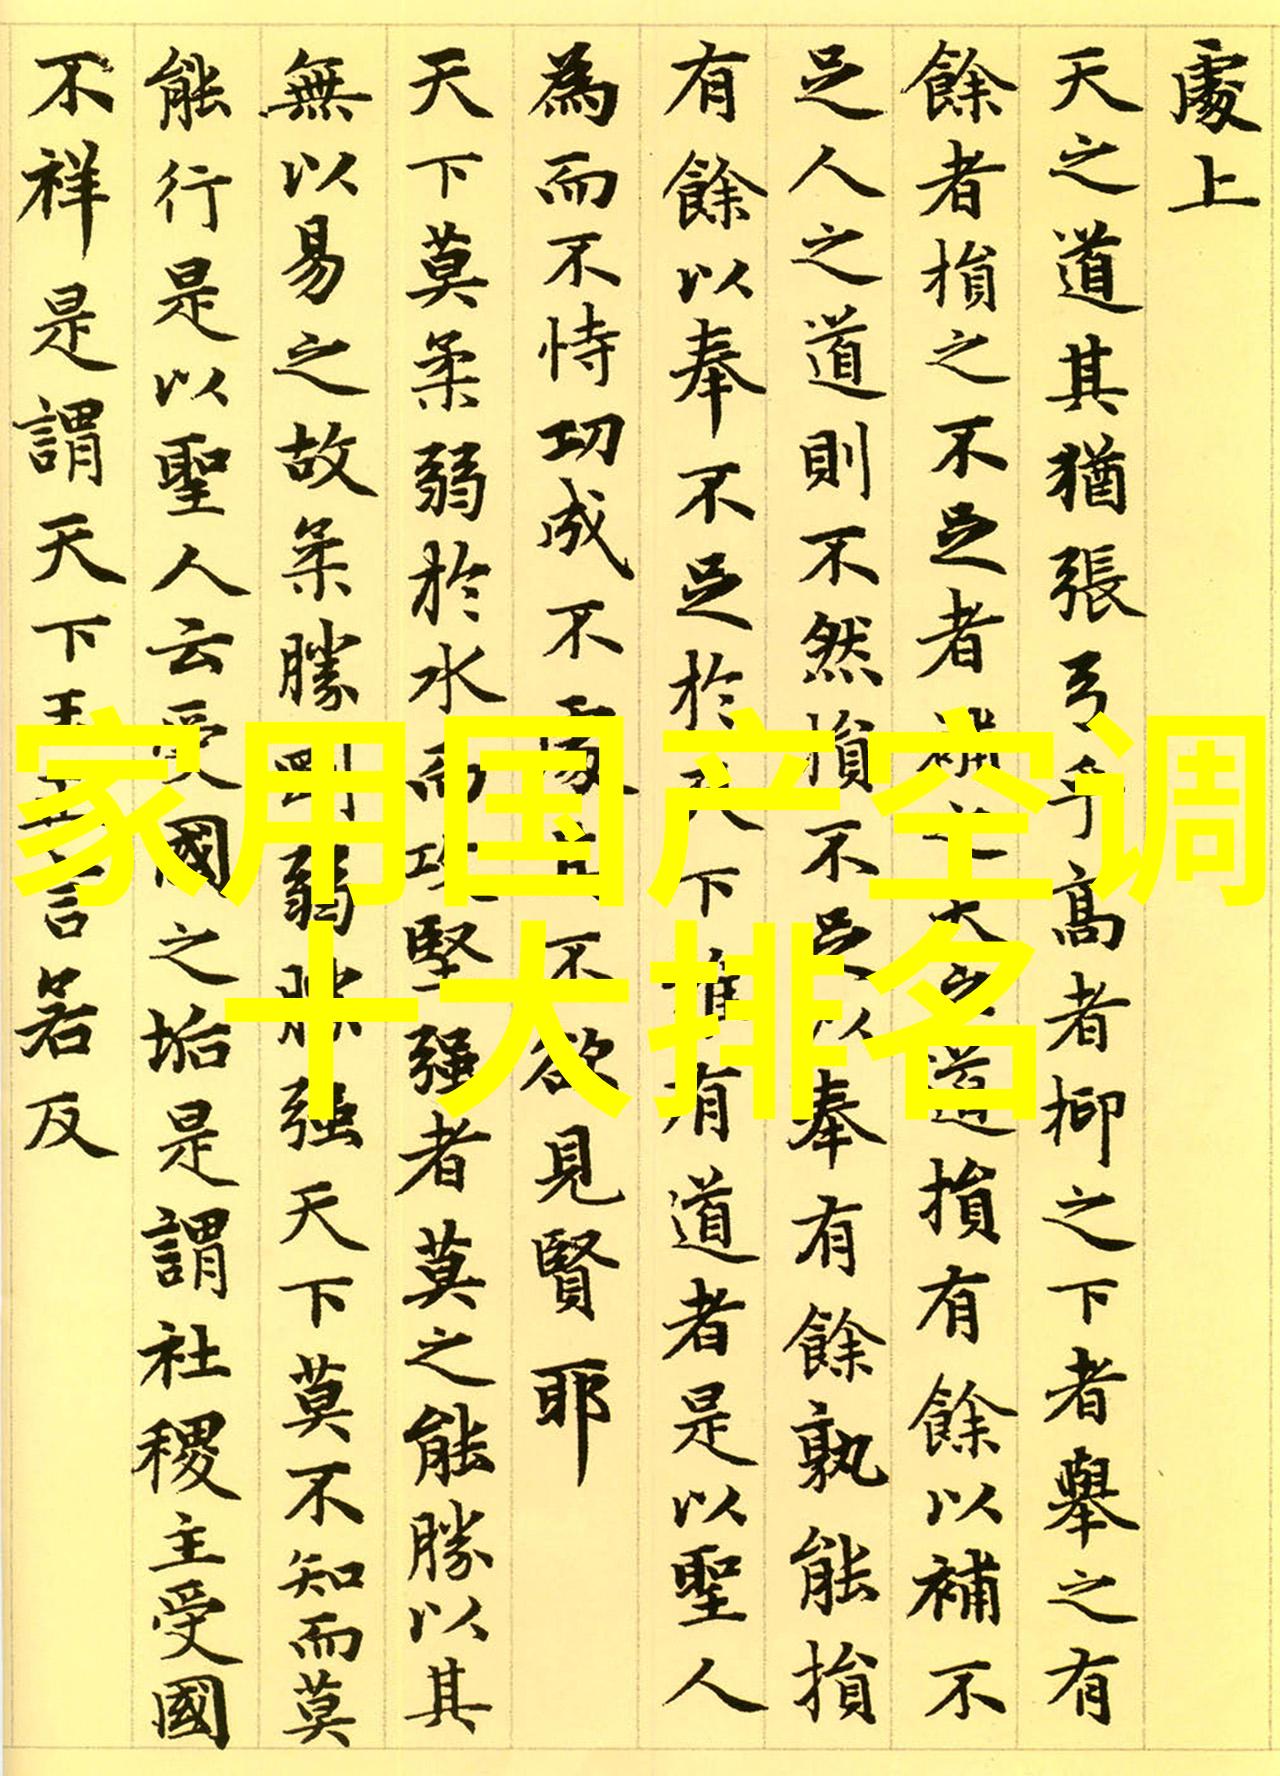 處上
天之道其猶張弓乎高者抑之下者舉之有
餘者損之不足者補之天之道損有餘以補不
足人之道則不然損不足以奉有餘孰能損
有餘以奉不足於天下唯有道者是以聖人
為而不恃功成不處其不欲見賢耶
天下莫柔弱於水而攻堅强者莫之能勝以其
無以易之故柔勝剛弱勝强天下莫不知而莫
能行是以聖人云受國之垢是謂社稷主受國
不祥是謂天下王正言若反
家用国产空调
十大排名